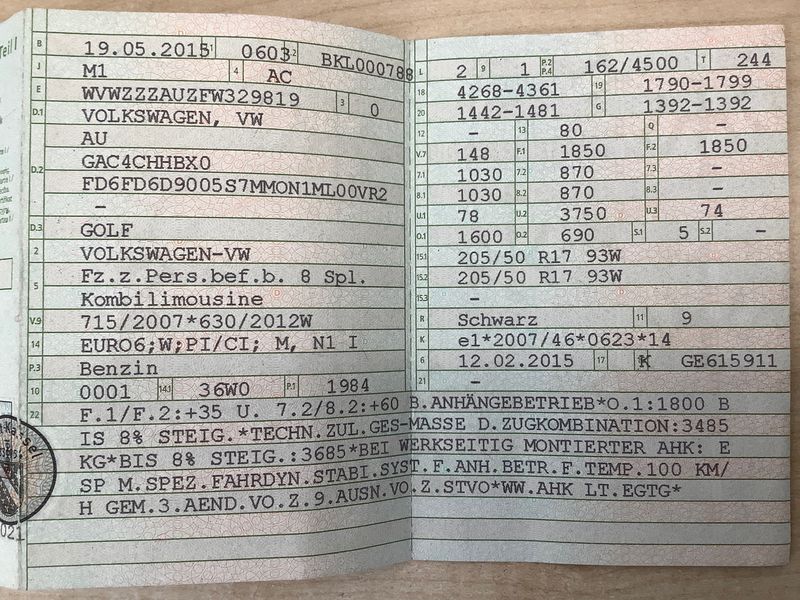 Teil I
B 19.05.2015 2.1 0603 2.2 BKL000788
J M1 4 AC
E WVWZZZAUZFW329819 3 0
D.1 VOLKSWAGEN, VW
AU
D.2 GAC4CHHBX0
FD6FD6D9005S7MMON1ML00VR2
–
D.3 GOLF
2 VOLKSWAGEN-VW
5 Fz.z.Pers.bef.b. 8 Spl.
Kombilimousine
V.9 715/2007*630/2012W
14 EURO6;W;PI/CI; M, N1 I
P.3 Benzin
10 0001 14.1 36W0 P.1 1984
L 2 9 1 P.2 P.4 162/4500 T 244
18 4268-4361 19 1790-1799
20 1442-1481 G 1392-1392
12 – 13 80 Q –
V.7 148 F.1 1850 F.2 1850
7.1 1030 7.2 870 7.3 –
8.1 1030 8.2 870 8.3 –
U.1 78 U.2 3750 U.3 74
O.1 1600 O.2 690 S.1 5 S.2 –
15.1 205/50 R17 93W
15.2 205/50 R17 93W
15.3 –
R Schwarz 11 9
K e1*2007/46*0623*14
6 12.02.2015 17 K GE615911
21 –
22 F.1/F.2:+35 U. 7.2/8.2:+60 B.ANHÄNGEBETRIEB*O.1:1800 B
IS 8% STEIG.*TECHN.ZUL.GES-MASSE D.ZUGKOMBINATION:3485
KG*BIS 8% STEIG.:3685*BEI WERKSEITIG MONTIERTER AHK: E
SP M.SPEZ.FAHRDYN.STABI.SYST.F.ANH.BETR.F.TEMP.100 KM/
H GEM.3.AEND.VO.Z.9.AUSN.VO.Z.STVO*WW.AHK LT.EGTG*